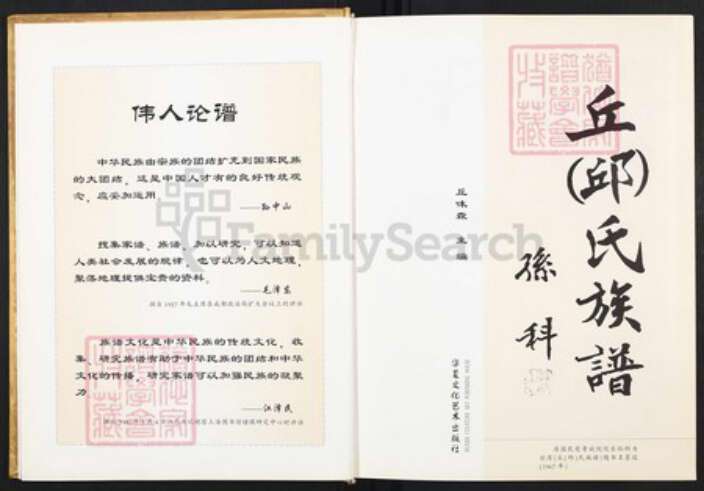 伟人论谱
中华民族由宗族的团结扩充到国家民族
的大团结，这是中国人才有的良好传统观
念，应妥加运用
——孙中山
搜集家谱、族谱，加以研究，可以知道
人类社会发展的规律，也可以为人文地理，
聚落地理提供宝贵的资料。
——毛泽东
摘自1957年毛主席在成都政治局扩大会议上的讲话
族谱文化是中华民族的传统文化，收
集、研究族谱有助于中华民族的团结和中华
文化的传播，研究家谱可以加强民族的凝聚
力
——江泽民
FamilySearch
丘(邱)氏族譜
孫科
主编
华夏文化艺术出版社
(1967年)